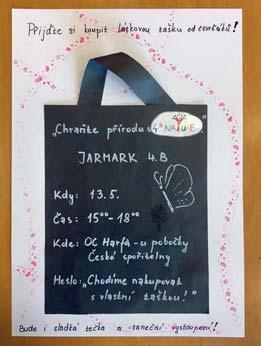 Přijďte si koupit látkovou tašku od čtvrťáků!
„Chraňte přírodu s 4B NATUR
JARMARK 4.B
Kdy: 13.5.
Čas: 15⁰⁰-18⁰⁰
Kde: OC Harfa - u pobočky
České spořitelny
Heslo: „Chodíme nakupovat
s vlastní taškou!"
Bude i sladká tečka a taneční vystoupení!